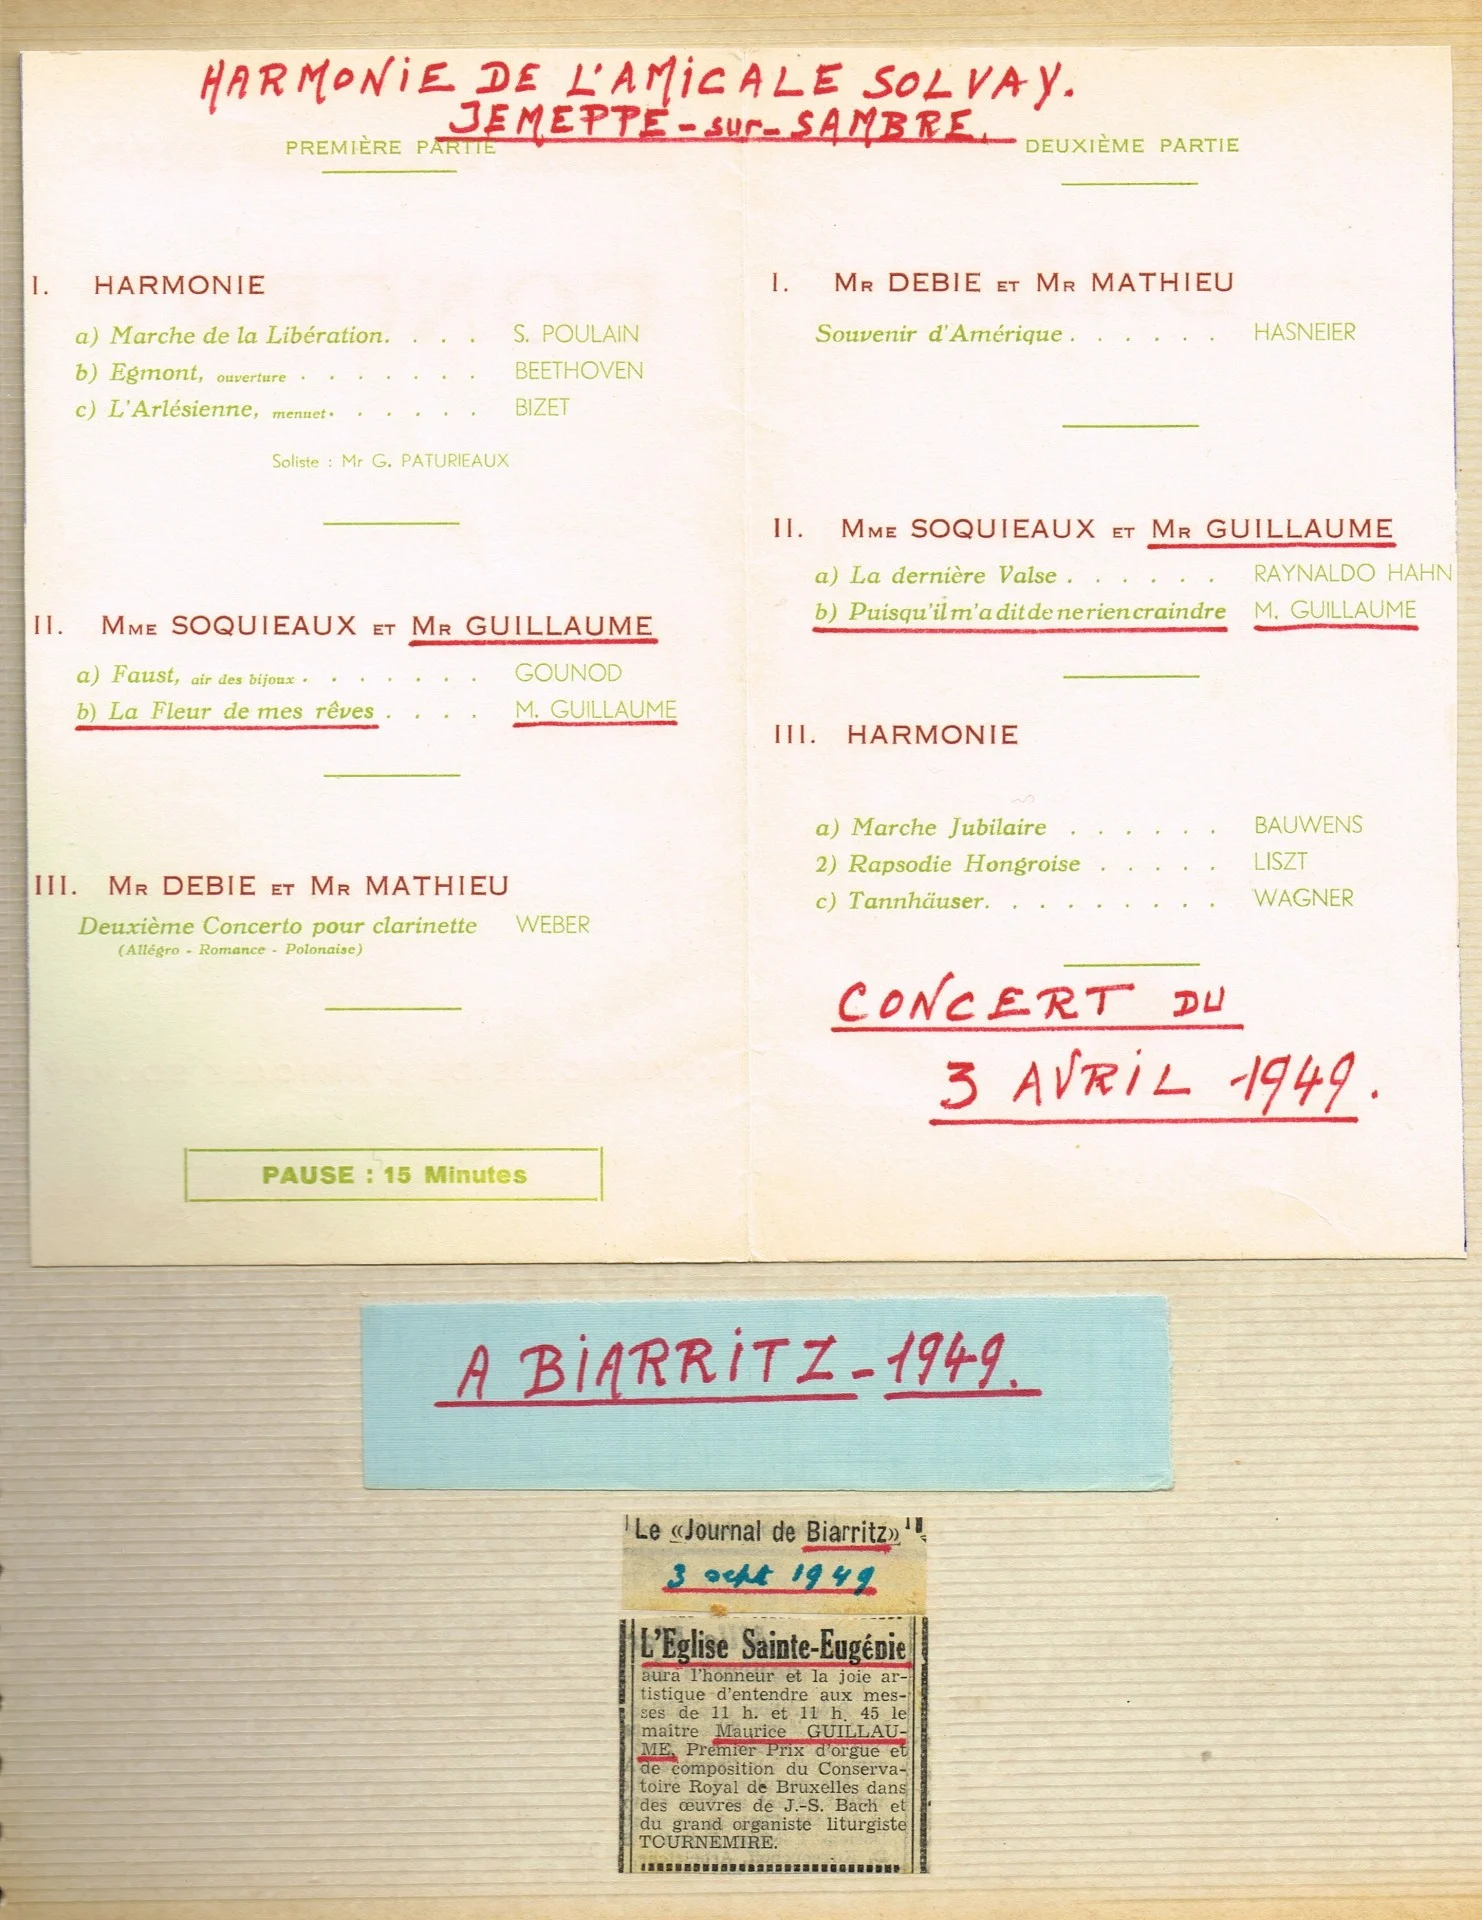 HARMONIE DE L'AMICALE SOLVAY.
JEMEPPE-sur-SAMBRE.
PREMIÈRE PARTIE
I. HARMONIE
a) Marche de la Libération. . . . S. POULAIN
b) Egmont, ouverture . . . . . . . BEETHOVEN
c) L'Arlésienne, menuet. . . . . . BIZET
Soliste : Mr G. PATURIEAUX
II. Mme SOQUIEAUX ET Mr GUILLAUME
a) Faust, air des bijoux . . . . . . . GOUNOD
b) La Fleur de mes rêves . . . . M. GUILLAUME
III. Mr DEBIE ET Mr MATHIEU
Deuxième Concerto pour clarinette WEBER
(Allégro - Romance - Polonaise)
PAUSE : 15 Minutes
DEUXIÈME PARTIE
I. Mr DEBIE ET Mr MATHIEU
Souvenir d'Amérique . . . . . . HASNEIER
II. Mme SOQUIEAUX ET Mr GUILLAUME
a) La dernière Valse . . . . . . RAYNALDO HAHN
b) Puisqu'il m'a dit de ne rien craindre M. GUILLAUME
III. HARMONIE
a) Marche Jubilaire . . . . . . BAUWENS
2) Rapsodie Hongroise . . . . . LISZT
c) Tannhäuser. . . . . . . . . WAGNER
CONCERT DU
3 AVRIL 1949.
A BIARRITZ-1949.
Le «Journal de Biarritz»
3 sept 1949
L'Eglise Sainte-Eugénie
aura l'honneur et la joie ar-
tistique d'entendre aux mes-
ses de 11 h. et 11 h. 45 le
maître Maurice GUILLAU-
ME, Premier Prix d'orgue et
de composition du Conserva-
toire Royal de Bruxelles dans
des œuvres de J.-S. Bach et
du grand organiste liturgiste
TOURNEMIRE.